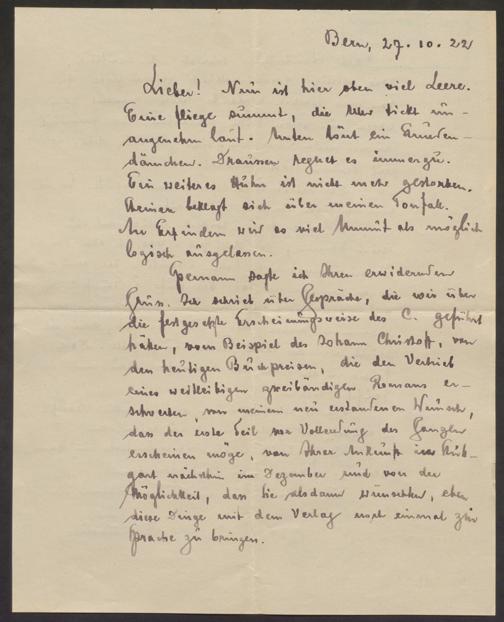 Bern, 27.10.22
Lieber! Nun ist hier oben viel Leere.
Eine Fliege summt, die Uhr tickt un-
angenehm laut. Unten hört ein
-dämchen. Draussen regnet es immerzu.
Ein weiteres Huhn ist nicht mehr gestorben.
beklagt sich über meinen Tonfall.
An wird so viel Unmut als möglich
logisch ausgelassen.
sagte ich Ihren erwidernden
Gruss. Der schrieb über Gespräche, die wir über
die festgesetzte Erscheinungsweise des C. geführt
hätten, vom Beispiel des Johann Christoff, von
den heutigen Buchpreisen, die den Vertrieb
eines weitleibigen zweibändigen Romans er-
schwerten, von meinem neu erstandenen Wunsch,
dass der erste Teil vor Vollendung des Ganzen
erscheinen möge, von Ihrer Ankunft in Stutt-
gart nächsthin im Dezember und von der
Möglichkeit, dass Sie alsdann wünschten, eben
diese Dinge mit dem Verlag noch einmal zur
Sprache zu bringen.